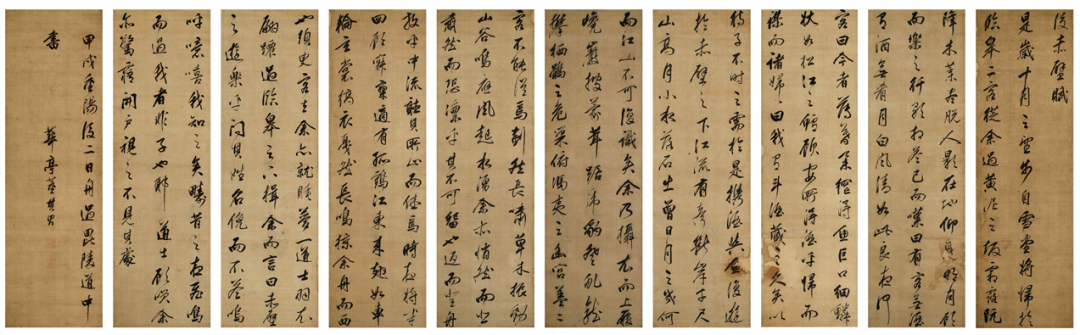 後赤壁賦
是歲十月之望步自雪堂將歸於
臨皋二客從余過黃泥之坂霜露既
降木葉盡脫人影在地仰見明月顧
而樂之行歌相答已而歎曰有客無酒
有酒無肴月白風清如此良夜何
客曰今者薄暮舉網得魚巨口細鱗
狀如松江之鱸顧安所得酒乎歸而
謀而諸婦曰我有斗酒藏之久矣以
待子不時之需於是攜酒與魚復遊
於赤壁之下江流有聲斷岸千尺
山高月小水落石出曾日月之幾何
而江山不可復識矣余乃攝衣而上履
巉巖披蒙茸踞虎豹登虬龍
攀栖鶻之危巢俯馮夷之幽宮蓋二
客不能從焉劃然長嘯草木振動
山谷鳴應風起水湧余亦悄然而悲
肅然而恐凜乎其不可留也返而登舟
放乎中流聽其所止而休焉時夜將半
四顧寂寥適有孤鶴江東來翅如車
輪玄裳縞衣戛然長鳴掠余舟而西
也須臾客去余亦就睡夢一道士羽衣
翩躚過臨皋之下揖余而言曰赤壁
之遊樂乎問其姓名俛而不答嗚
呼噫嘻我知之矣疇昔之夜飛鳴
而過我者非子也耶道士顧笑余
亦驚寤開戶視之不見其處
甲戌重陽後二日舟過毘陵道中
書
華亭董其昌